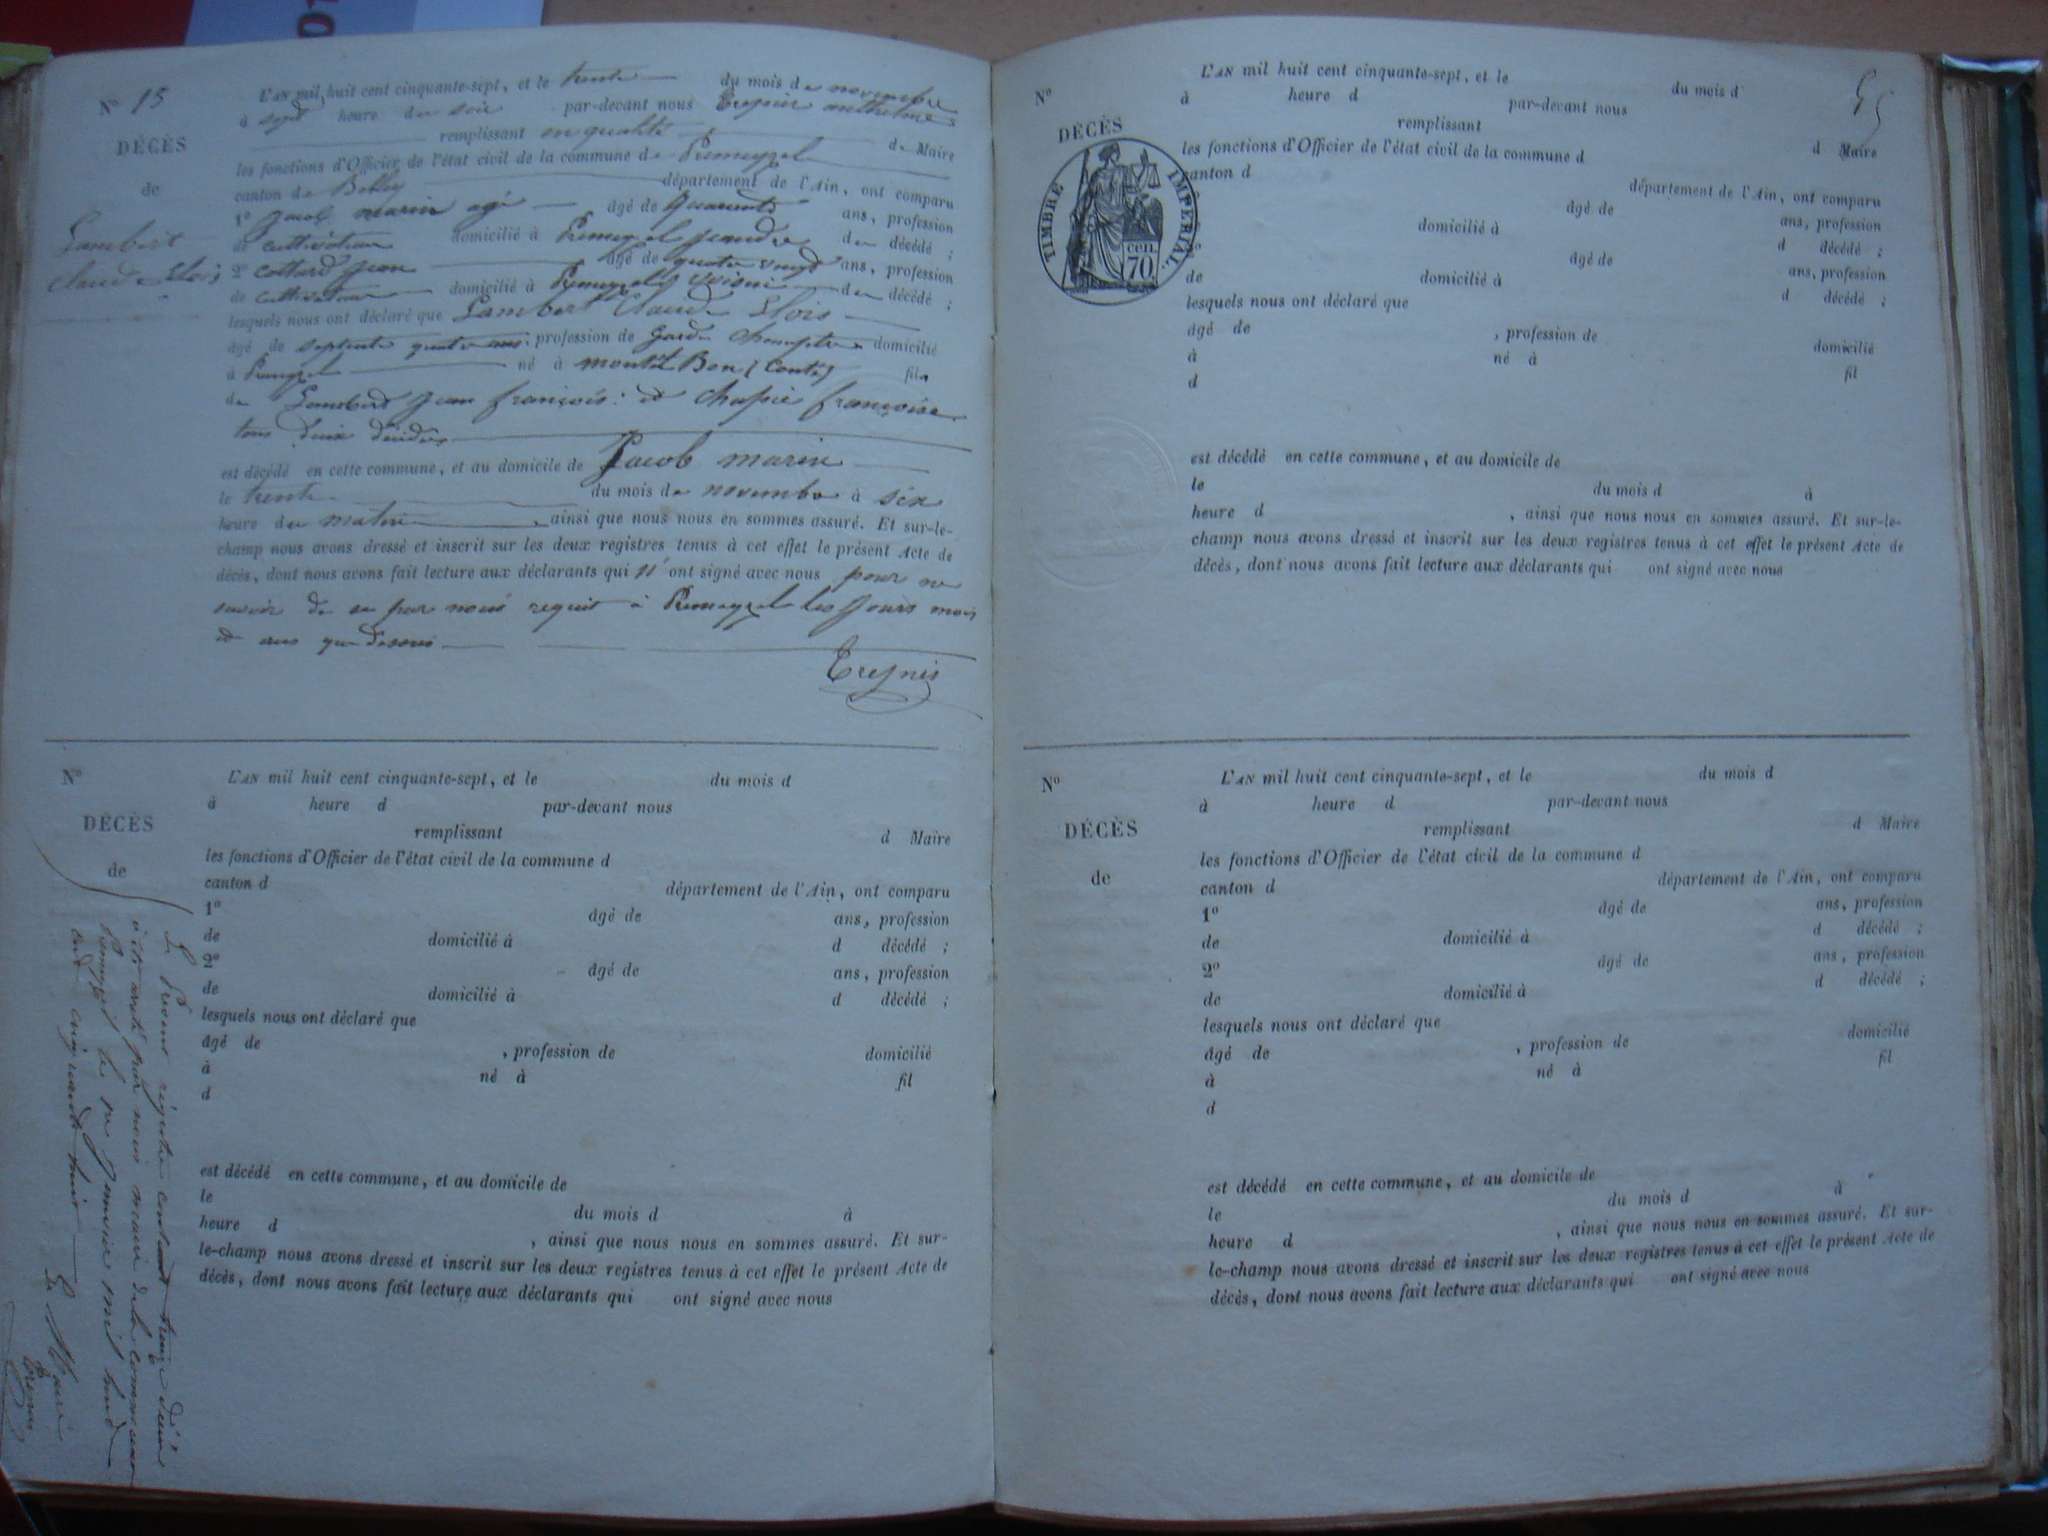 N° 15
DÉCÈS
de
Lambert
Claude Elois
L'AN mil huit cent cinquante-sept, et le trente du mois de novembre
à sept heure du soir par-devant nous
remplissant en qualité de Maire
les fonctions d'Officier de l'état civil de la commune de Premeyzel
canton de Belley département de l'Ain, ont comparu
1° Jacob marin agé âgé de quarente ans, profession
de cultivateur domicilié à Premeyzel gendre du décédé ;
2° Cottard Jean âgé de quatre vingt ans, profession
de cultivateur domicilié à Premeyzel voisin du décédé ;
lesquels nous ont déclaré que Lambert Claude Elois
âgé de septente quatre ans profession de Garde champetre domicilié
à Premeyzel né à fils
de Lambert Jean françois et Chapie françoise
tous deux décédés
est décédé en cette commune, et au domicile de Jacob marin
le trente du mois de novembre à six
heure du matin, ainsi que nous nous en sommes assuré. Et sur-le-
champ nous avons dressé et inscrit sur les deux registres tenus à cet effet le présent Acte de
décès, dont nous avons fait lecture aux déclarants qui n' ont signé avec nous pour ne
savoir de ce par nous requit à Premeyzel les jours mois
et ans que dessus
N°
DÉCÈS
de
L'AN mil huit cent cinquante-sept, et le du mois d
à heure d par-devant nous
remplissant d Maire
les fonctions d'Officier de l'état civil de la commune d
canton d département de l'Ain, ont comparu
1° âgé de ans, profession
de domicilié à d décédé ;
2° âgé de ans, profession
de domicilié à d décédé ;
lesquels nous ont déclaré que
âgé de , profession de domicilié
à né à fil
d
est décédé en cette commune, et au domicile de
le du mois d à
heure d , ainsi que nous nous en sommes assuré. Et sur-
le-champ nous avons dressé et inscrit sur les deux registres tenus à cet effet le présent Acte de
décès, dont nous avons fait lecture aux déclarants qui ont signé avec nous
Le Présent régistre contenant treize
a été arrêté par nous maire de la commune
Premeyzel le janvier mil huit
cent cinquante huit
Le Maire
N°
DÉCÈS
TIMBRE IMPÉRIAL
cen
70
L'AN mil huit cent cinquante-sept, et le du mois d
à heure d par-devant nous
remplissant d Maire
les fonctions d'Officier de l'état civil de la commune d
canton d département de l'Ain, ont comparu
âgé de ans, profession
domicilié à d décédé ;
âgé de ans, profession
de domicilié à d décédé ;
lesquels nous ont déclaré que
âgé de , profession de domicilié
à né à fil
d
est décédé en cette commune, et au domicile de
le du mois d à
heure d , ainsi que nous nous en sommes assuré. Et sur-le-
champ nous avons dressé et inscrit sur les deux registres tenus à cet effet le présent Acte de
décès, dont nous avons fait lecture aux déclarants qui ont signé avec nous
N°
DÉCÈS
de
L'AN mil huit cent cinquante-sept, et le du mois d
à heure d par-devant nous
remplissant d Maire
les fonctions d'Officier de l'état civil de la commune d
canton d département de l'Ain, ont comparu
1° âgé de ans, profession
de domicilié à d décédé ;
2° âgé de ans, profession
de domicilié à d décédé ;
lesquels nous ont déclaré que
âgé de , profession de domicilié
à né à fil
d
est décédé en cette commune, et au domicile de
le du mois d à
heure d , ainsi que nous nous en sommes assuré. Et sur-
le-champ nous avons dressé et inscrit sur les deux registres tenus à cet effet le présent Acte de
décès, dont nous avons fait lecture aux déclarants qui ont signé avec nous